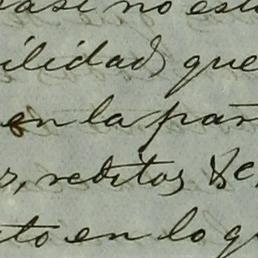 casi no est
ilidad, que
en la par
s, reditos &c
to en lo q